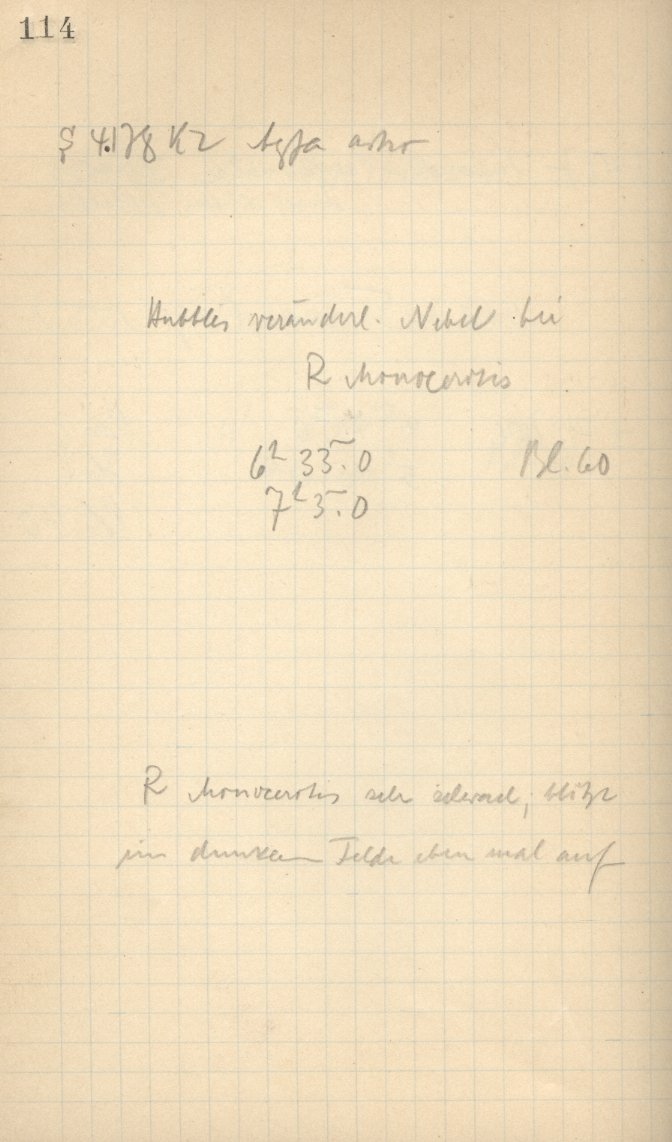 114
S 4178 K2 Agfa astro
Hubbles veränderl. Nebel bei
R Monocerotis
6h 33m.0 Bl. 60
7h 3m.0
R Monocerotis sehr schwach, blitzt
im dunklen Felde eben mal auf